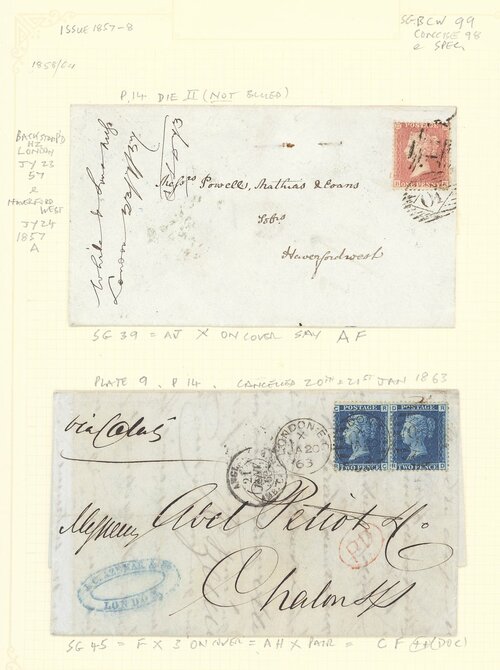 ISSUE 1857-8
SG BCW 99
CONCISE 98
& SPEC
P.14 DIE II (NOT BLUED)
BACKSTAMPD
HZ
LONDON
JY 23
57
&
HAVERFORD
WEST
JY 24
1857
A
London
Messrs Powell, Mathias & Evans
Solrs
Haverfordwest
SG 39 = AJ X ON COVER SAY AF
PLATE 9. P14. CANCELLED 20TH & 21ST JAN 1863
via Calais
LONDON-E.C
X
JA 20
63
POSTAGE
TWO PENCE
TWO PENCE
Messieurs Abel Petiot & Co
P.D
Chalon S/S
LONDON
SG 45 = F X 3 ON COVER = AH X PAIR = CF